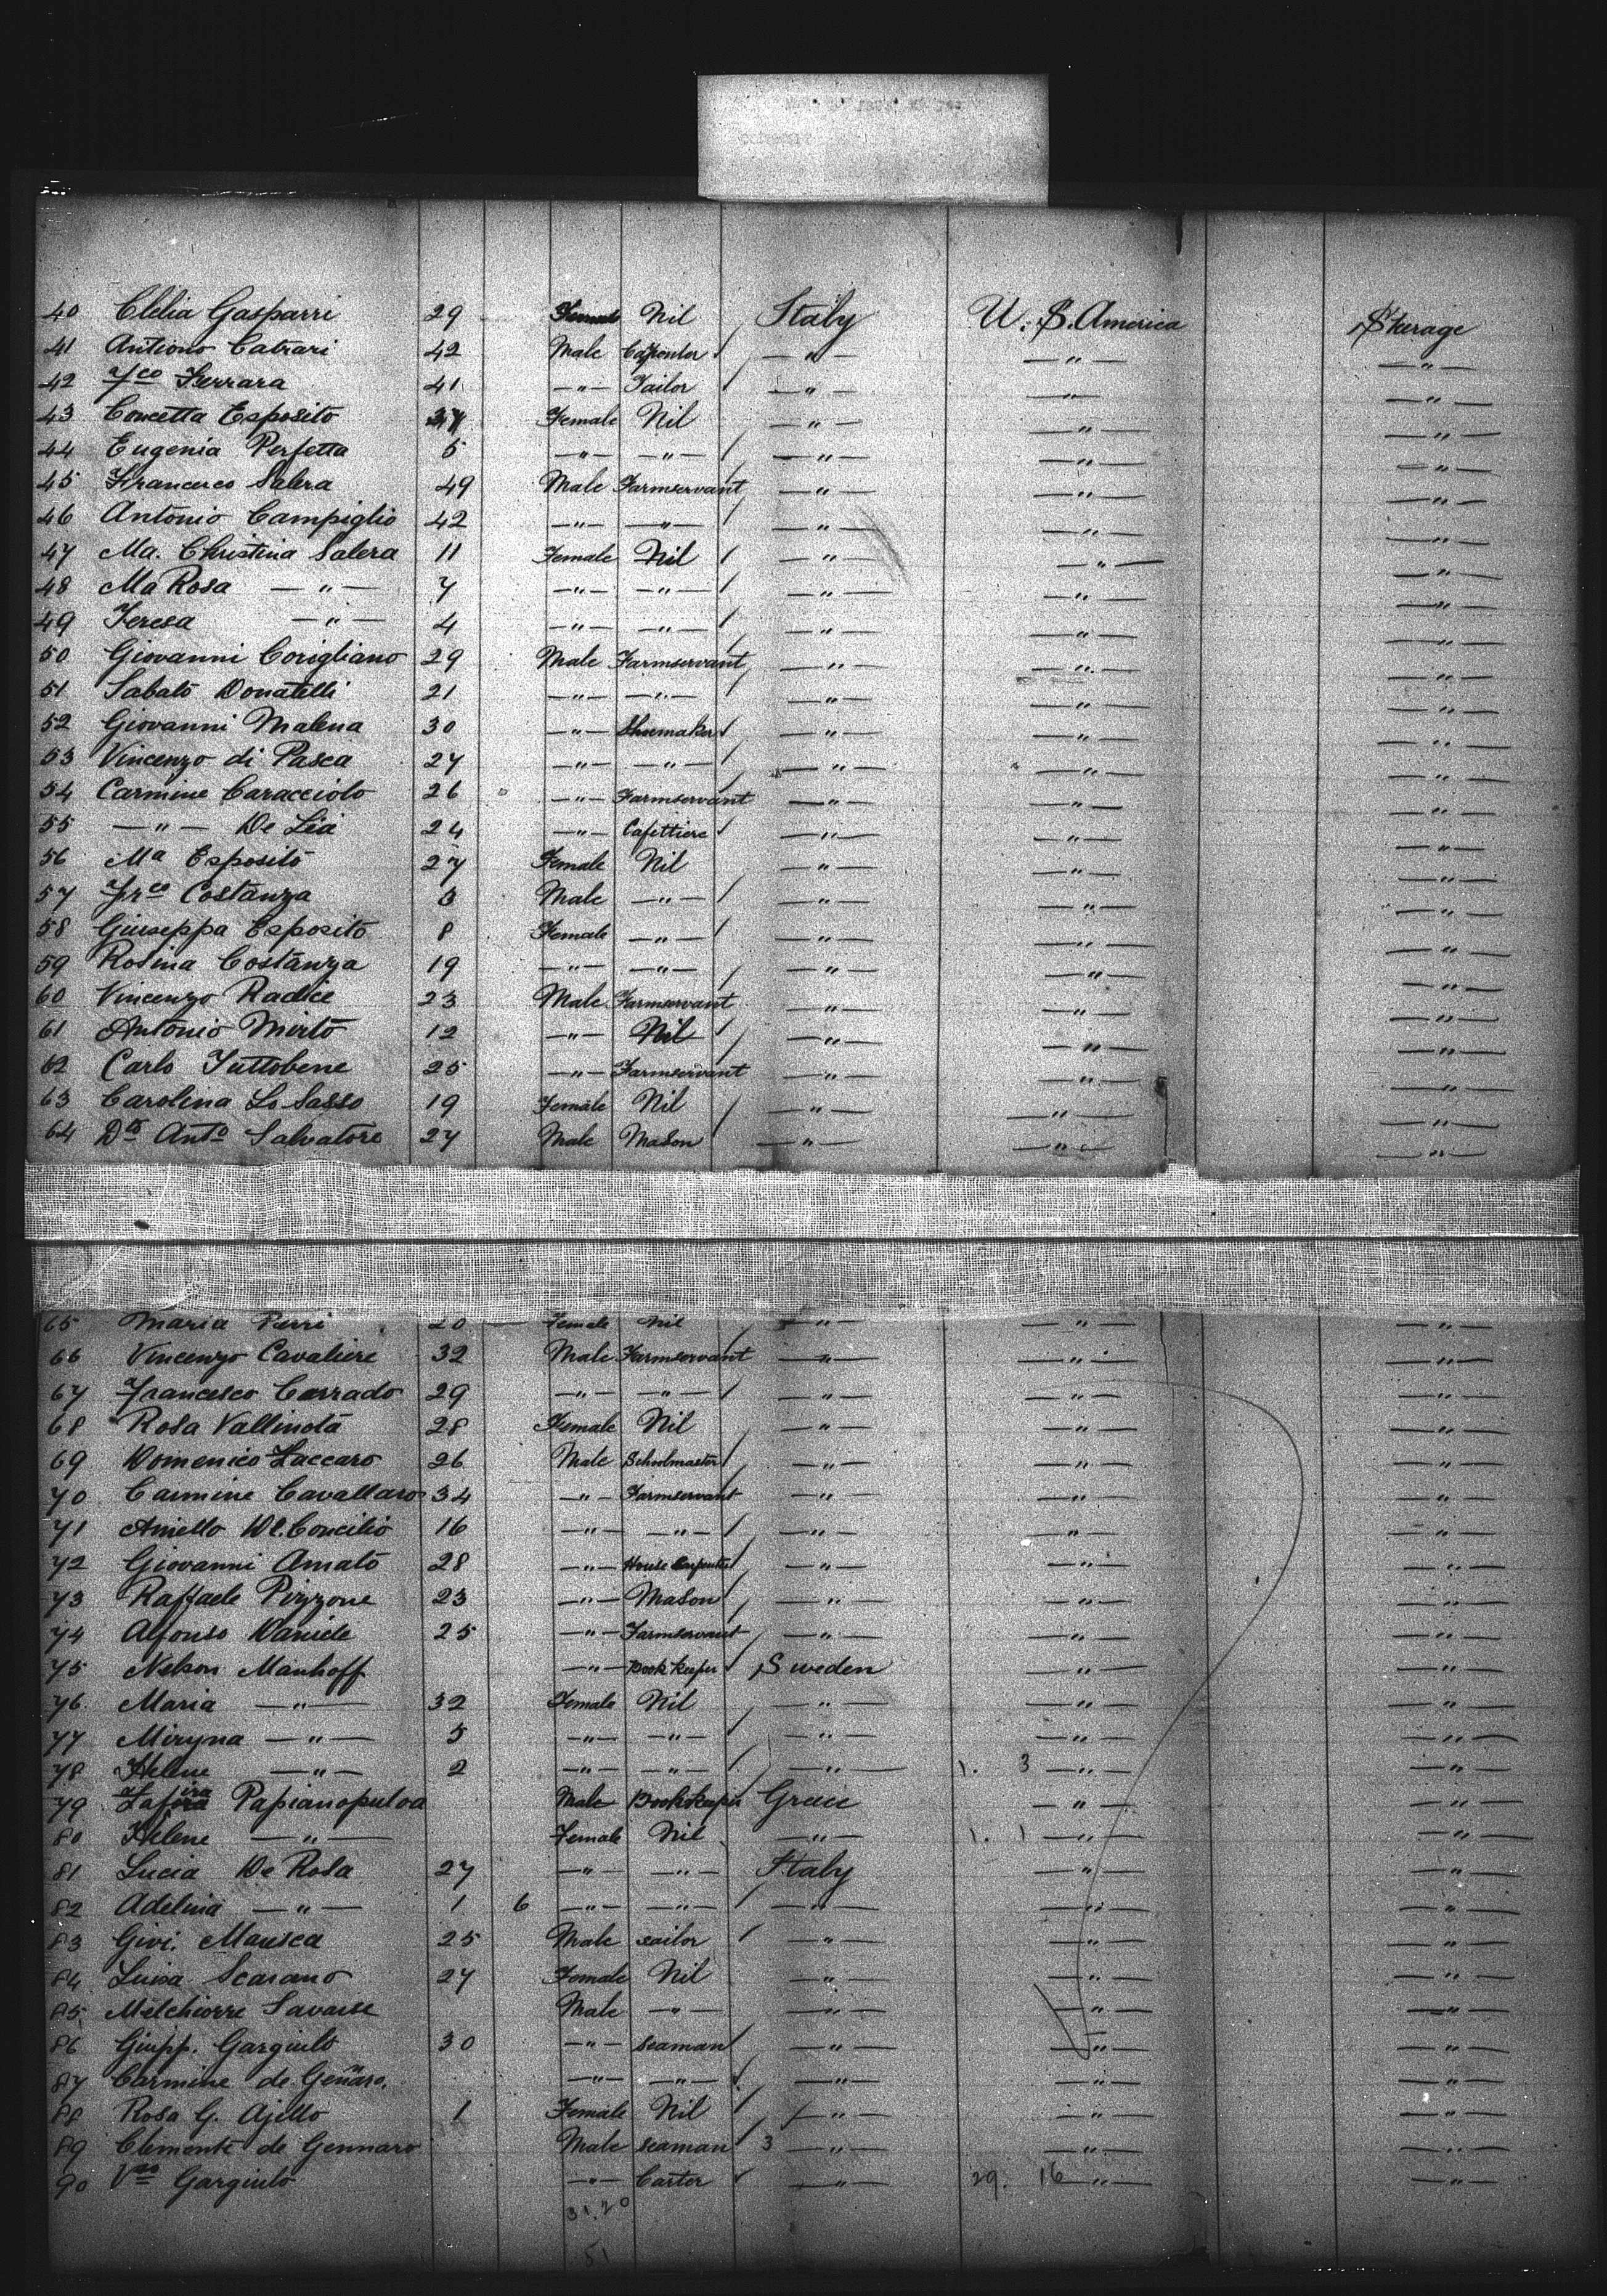 40 Clelia Gasparri 29 Female Nil Italy U. S. America Steerage
41 Antiono Catrari 42 Male Capenter " " "
42 Fco Ferrara 41 " Tailor " " "
43 Concetta Esposito Female Nil " " "
44 Eugenia Perfetta 5 " " " " "
45 Francesco Salera 49 Male Farmservant " " "
46 Antonio Campiglio 42 " " " " "
47 Ma. Christina Salera 11 Female Nil " " "
48 Ma Rosa " 7 " " " " "
49 Teresa " 4 " " " " "
50 Giovanni Corigliano 29 Male Farmservant " " "
51 Sabato Donatelli 21 " " " " "
52 Giovanni Malena 30 " Shoemaker " " "
53 Vincenzo di Pasca 27 " " " " "
54 Carmine Caracciolo 26 " Farmservant " " "
55 " De Lia 24 " Cafettiere " " "
56 Ma Esposito 27 Female Nil " " "
57 Frco Costanza 3 Male " " " "
58 Giuseppa Esposito 8 Female " " " "
59 Rosina Costanza 19 " " " " "
60 Vincenzo Radice 23 Male Farmservant " " "
61 Antonio Mirto 12 " Nil " " "
62 Carlo Tuttobene 25 " Farmservant " " "
63 Carolina Lo Sasso 19 Female Nil " " "
64 Anto Salvatore 27 Male Mason " " "
65 Maria Perri 20 Female Nil " " "
66 Vincenzo Cavaliere 32 Male Farmservant " " "
67 Francesco Carrado 29 " " " " "
68 Rosa Vallinota 28 Female Nil " " "
69 Domenico Laccaro 26 Male Schoolmaster " " "
70 Carmine Cavallaro 34 " Farmservant " " "
71 Aniello De Concilio 16 " " " " "
72 Giovanni Amato 28 " House Carpenter " " "
73 Raffaele Pizzone 23 " Mason " " "
74 Alfonso Daniele 25 " Farmservant " " "
75 Nelson Manhoff " Book Keeper Sweden " "
76. Maria " 32 Female Nil " " "
77 Miryna " 5 " " " " "
78 Helene " 2 " " " 1. 3 " "
79 Papianopuloa Male Bookkeeper Greece " "
80 Helene " Female Nil " 1. 1 " "
81 Lucia De Rosa 27 " " Italy " "
82 Adelina " 1 6 " " " " "
83 Givi. Mausca 25 Male sailor " " "
84 Luisa Scarano 27 Female Nil " " "
85. Melchiorre Savarese Male " " " "
86 Giupp. Gargiulo 30 " seaman " " "
87 Carmine de Gennaro. " " " " "
88 Rosa G. Ajello 1 Female Nil " " "
89 Clemente de Gennaro Male seaman 3 " " "
90 Vzo Gargiulo " Carter " 29. 16 " "
31. 20
51